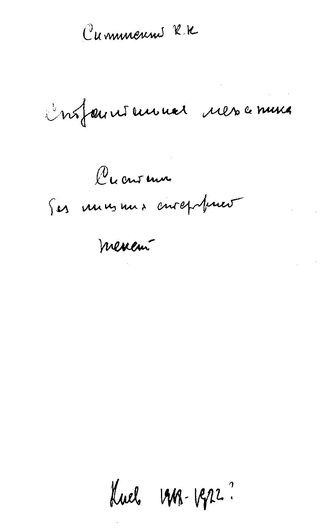 Симинский К.К
Строительная механика
Система
без лишних стержней
Киев 1918-1922?